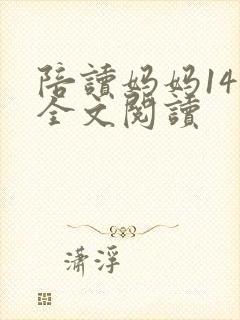 陪讀妈妈14
全文閱讀
潇浮